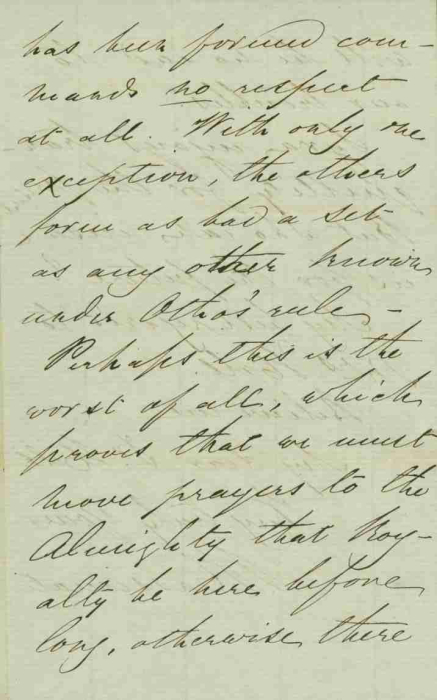 has been formed com-
mands no respect
at all. With only one
exception, the others
form as bad a set
as any other known
under Otho's rule -
Perhaps this is the
worst of all, which
proves that we must
move prayers to the
Almighty that Roy-
alty be here before
long, otherwise there